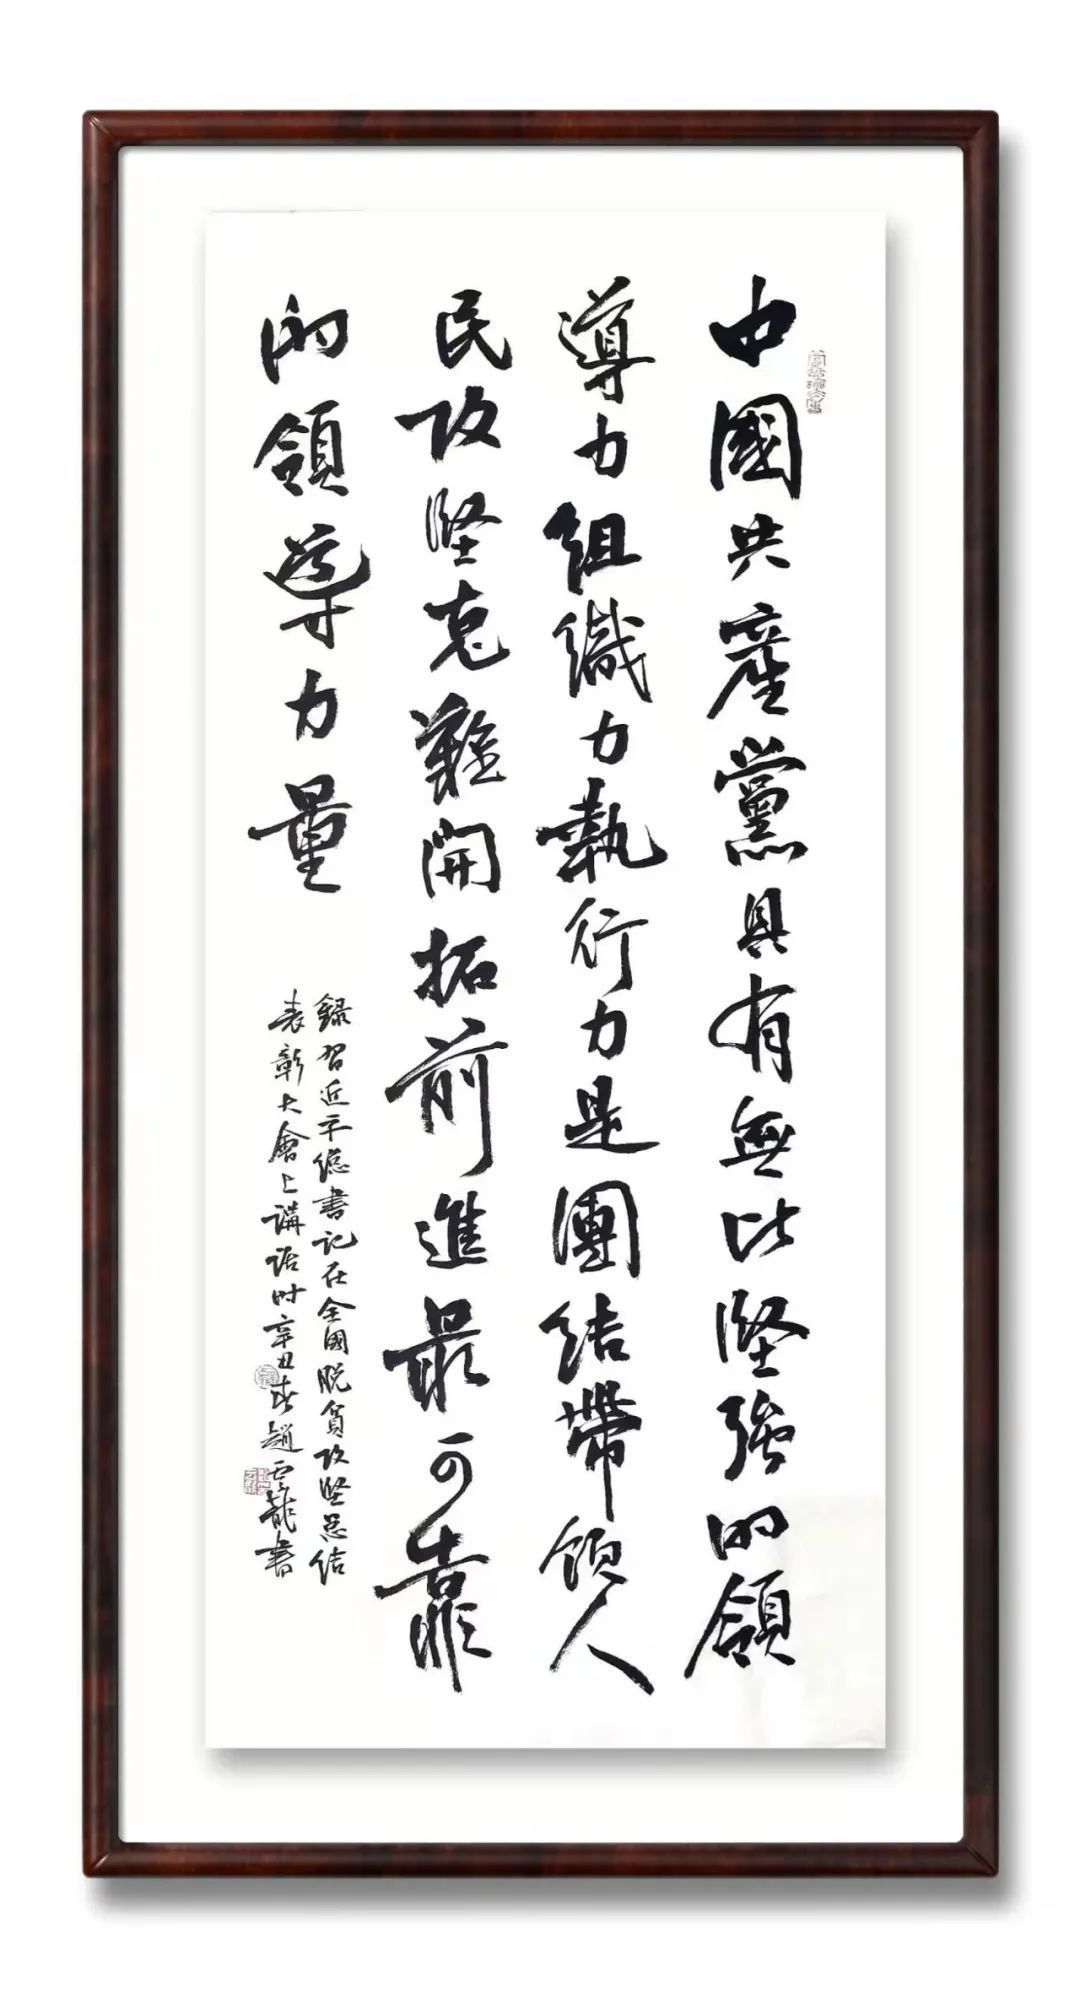 中國共產黨具有無比堅強的領
導力組織力執行力是團結帶領人
民攻堅克難開拓前進最可靠
的領導力量
錄習近平總書記在全國脫貧攻堅總結
表彰大會上講話時辛丑春趙雲龍書